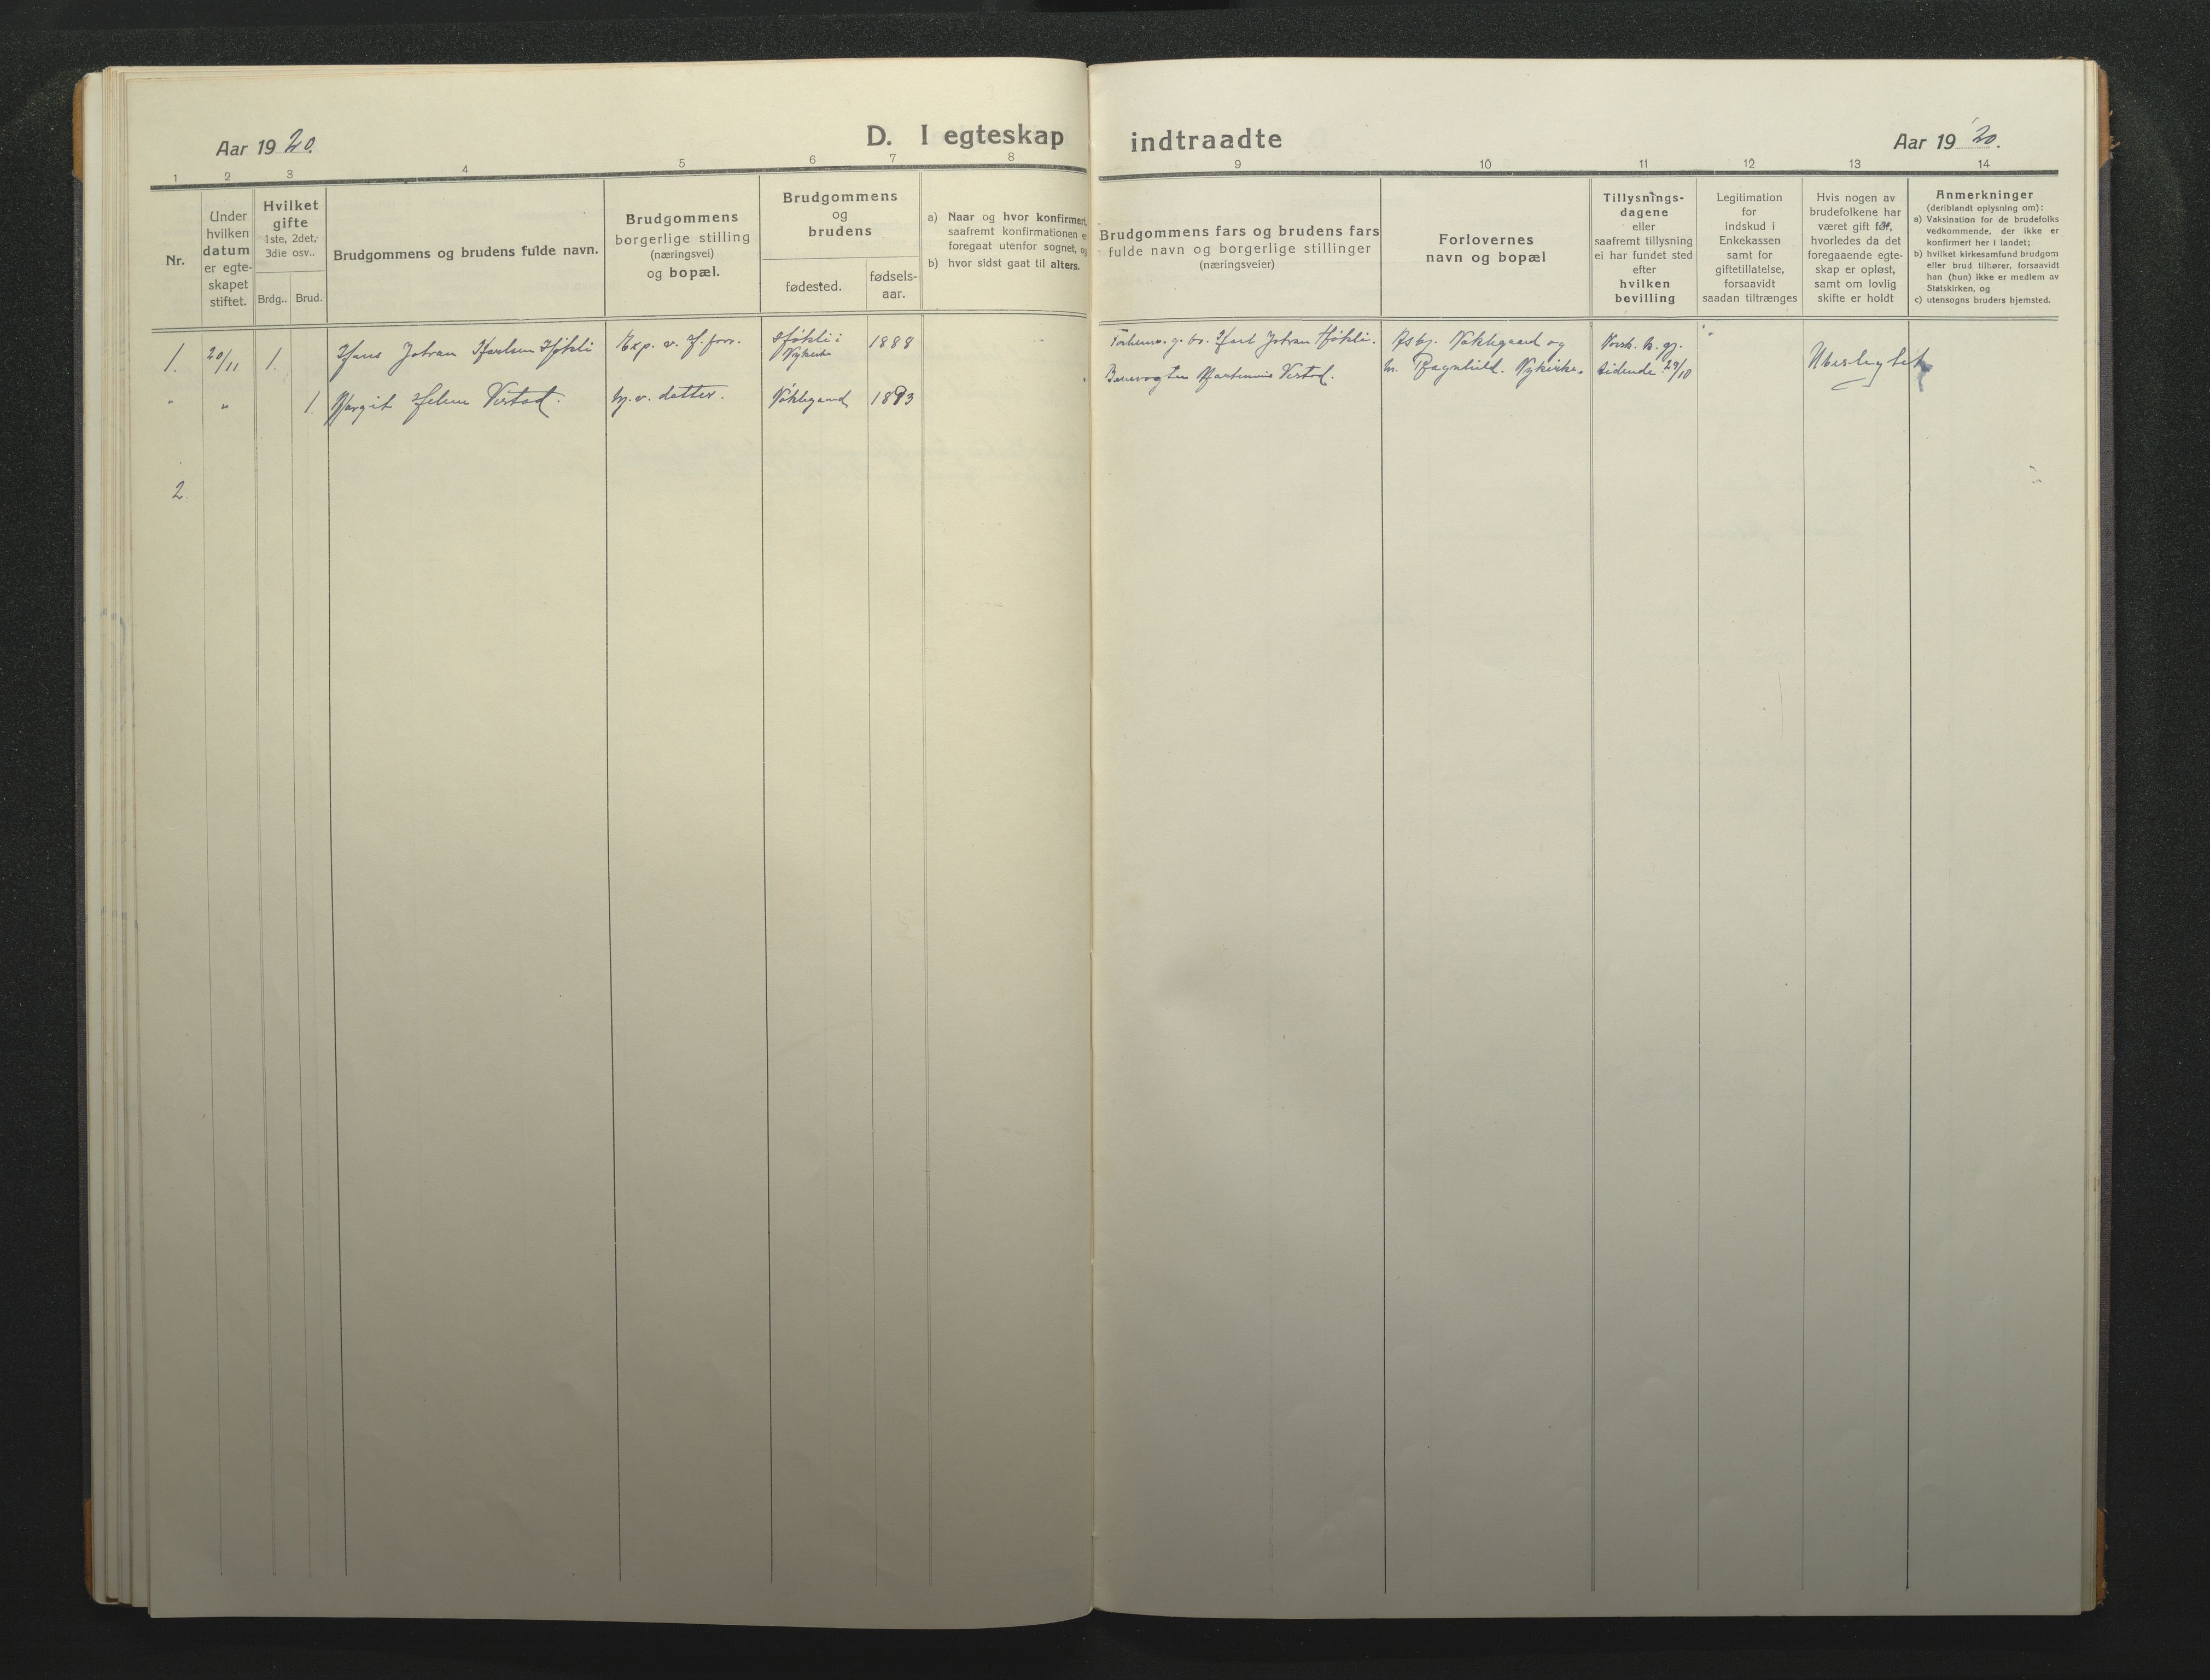 Aar 1920.
D. I egteskap
indtraadte
Aar 1920.
1 2 3 4 5 6 7 8 9 10 11 12 13 14
Nr.
Under
hvilken
datum
er egte-
skapet
stiftet.
Hvilket
gifte
1ste, 2det,
3die osv..
Brdg..
Brud.
Brudgommens og brudens fulde navn.
Brudgommens
borgerlige stilling
(næringsvei)
og bopæl.
Brudgommens
og
brudens
fødested.
fødsels-
aar.
a) Naar og hvor konfirmert,
saafremt konfirmationen e
foregaat utenfor sognet, og
b) hvor sidst gaat til alters.
Brudgommens fars og brudens fars
fulde navn og borgerlige stillinger
(næringsveier)
Forlovernes
navn og bopæl
Tillysnings-
dagene
eller
saafremt tillysning
ei har fundet sted
efter
hvilken
bevilling
Legitimation
for
indskud i
Enkekassen
samt for
giftetillatelse,
forsaavidt
saadan tiltrænges
Hvis nogen av
brudefolkene har
været gift før,
hvorledes da det
foregaaende egte-
skap er opløst,
samt om lovlig
skifte er holdt
Anmerkninger
(deriblandt oplysning om):
a) Vaksination for de brudefolks
vedkommende, der ikke er
konfirmert her i landet;
b) hvilket kirkesamfund brudgom
eller brud tilhører, forsaavidt
han (hun) ikke er medlem av
Statskirken, og
c) utensogns bruders hjemsted.
1. 20/11 1. Hans Johan Karlsen Høkli Exp. v. f. forr. Høkli i 1888
Nykirke
Karl Johan Høkli. Asbj. Nøklegaard og
Martinius Vestad. m. Ragnhild. Nykirke. tidende 29/10
Ubeslegtet
" " 1. Margit Helene Vestad. hj. v. datter. Nøklegaard 1893
2.